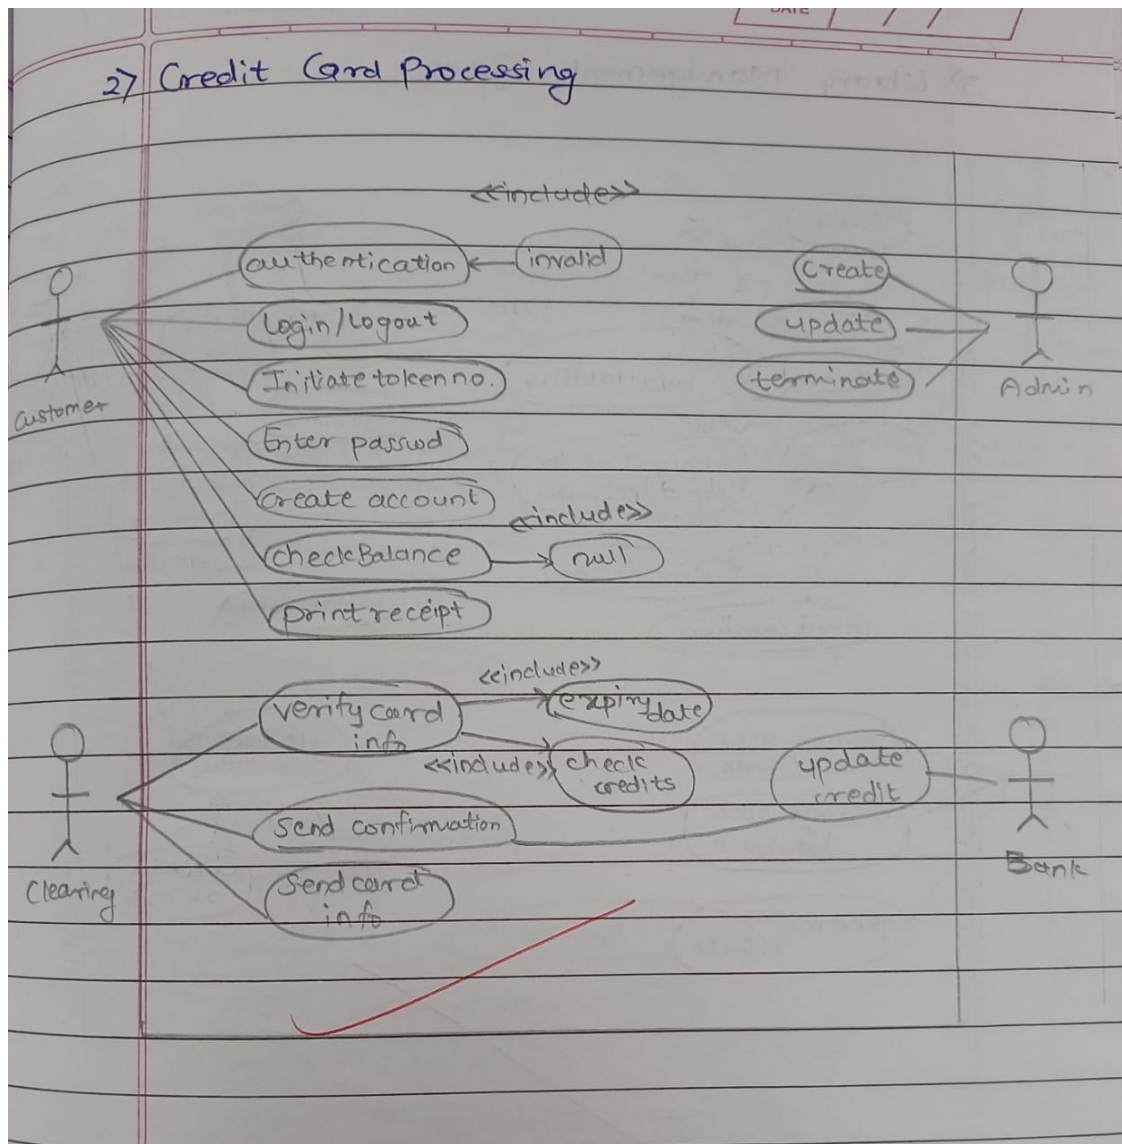 DATE
2) Credit Card Processing
<<include>>
authentication
invalid
Create
Login/Logout
update
Initiate token no.
terminate
Customer
Admin
Enter passwd
Create account
<<include>>
checkBalance
null
print receipt
<<include>>
verify card
info
expiry
date
<<include>>
check
credits
update
credit
Send confirmation
Clearing
Bank
Send card
info